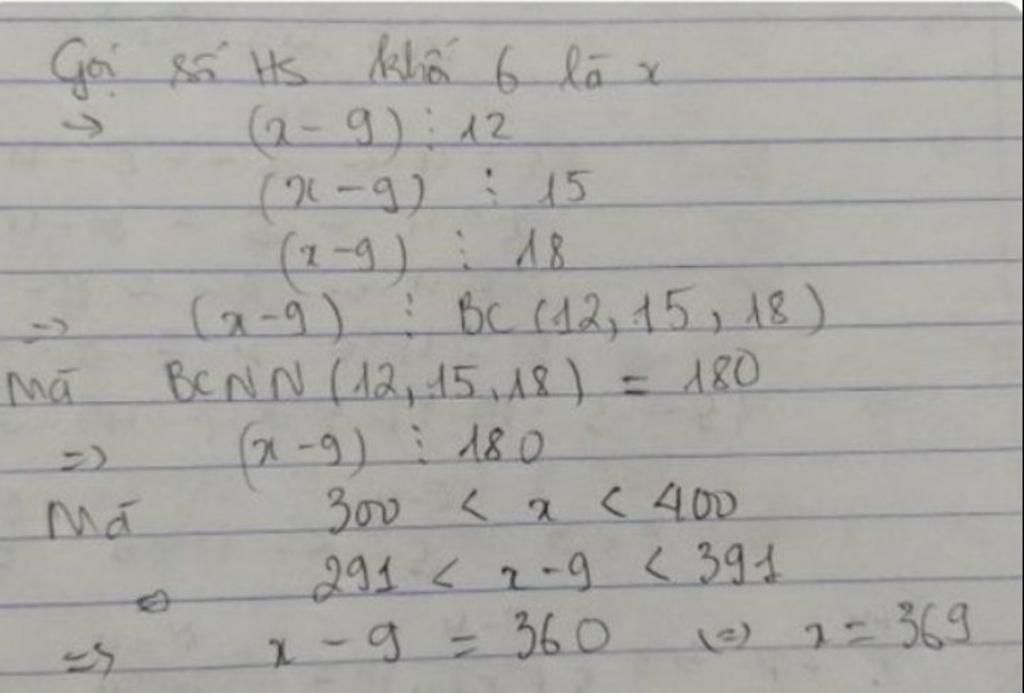 Gọi số HS khối 6 là x
→ (x - 9) ⋮ 12
(x - 9) ⋮ 15
(x - 9) ⋮ 18
=> (x - 9) ⋮ BC (12, 15, 18)
Mà BCNN (12, 15, 18) = 180
=> (x - 9) ⋮ 180
Mà 300 < x < 400
291 < x - 9 < 391
=> x - 9 = 360 (=) x = 369